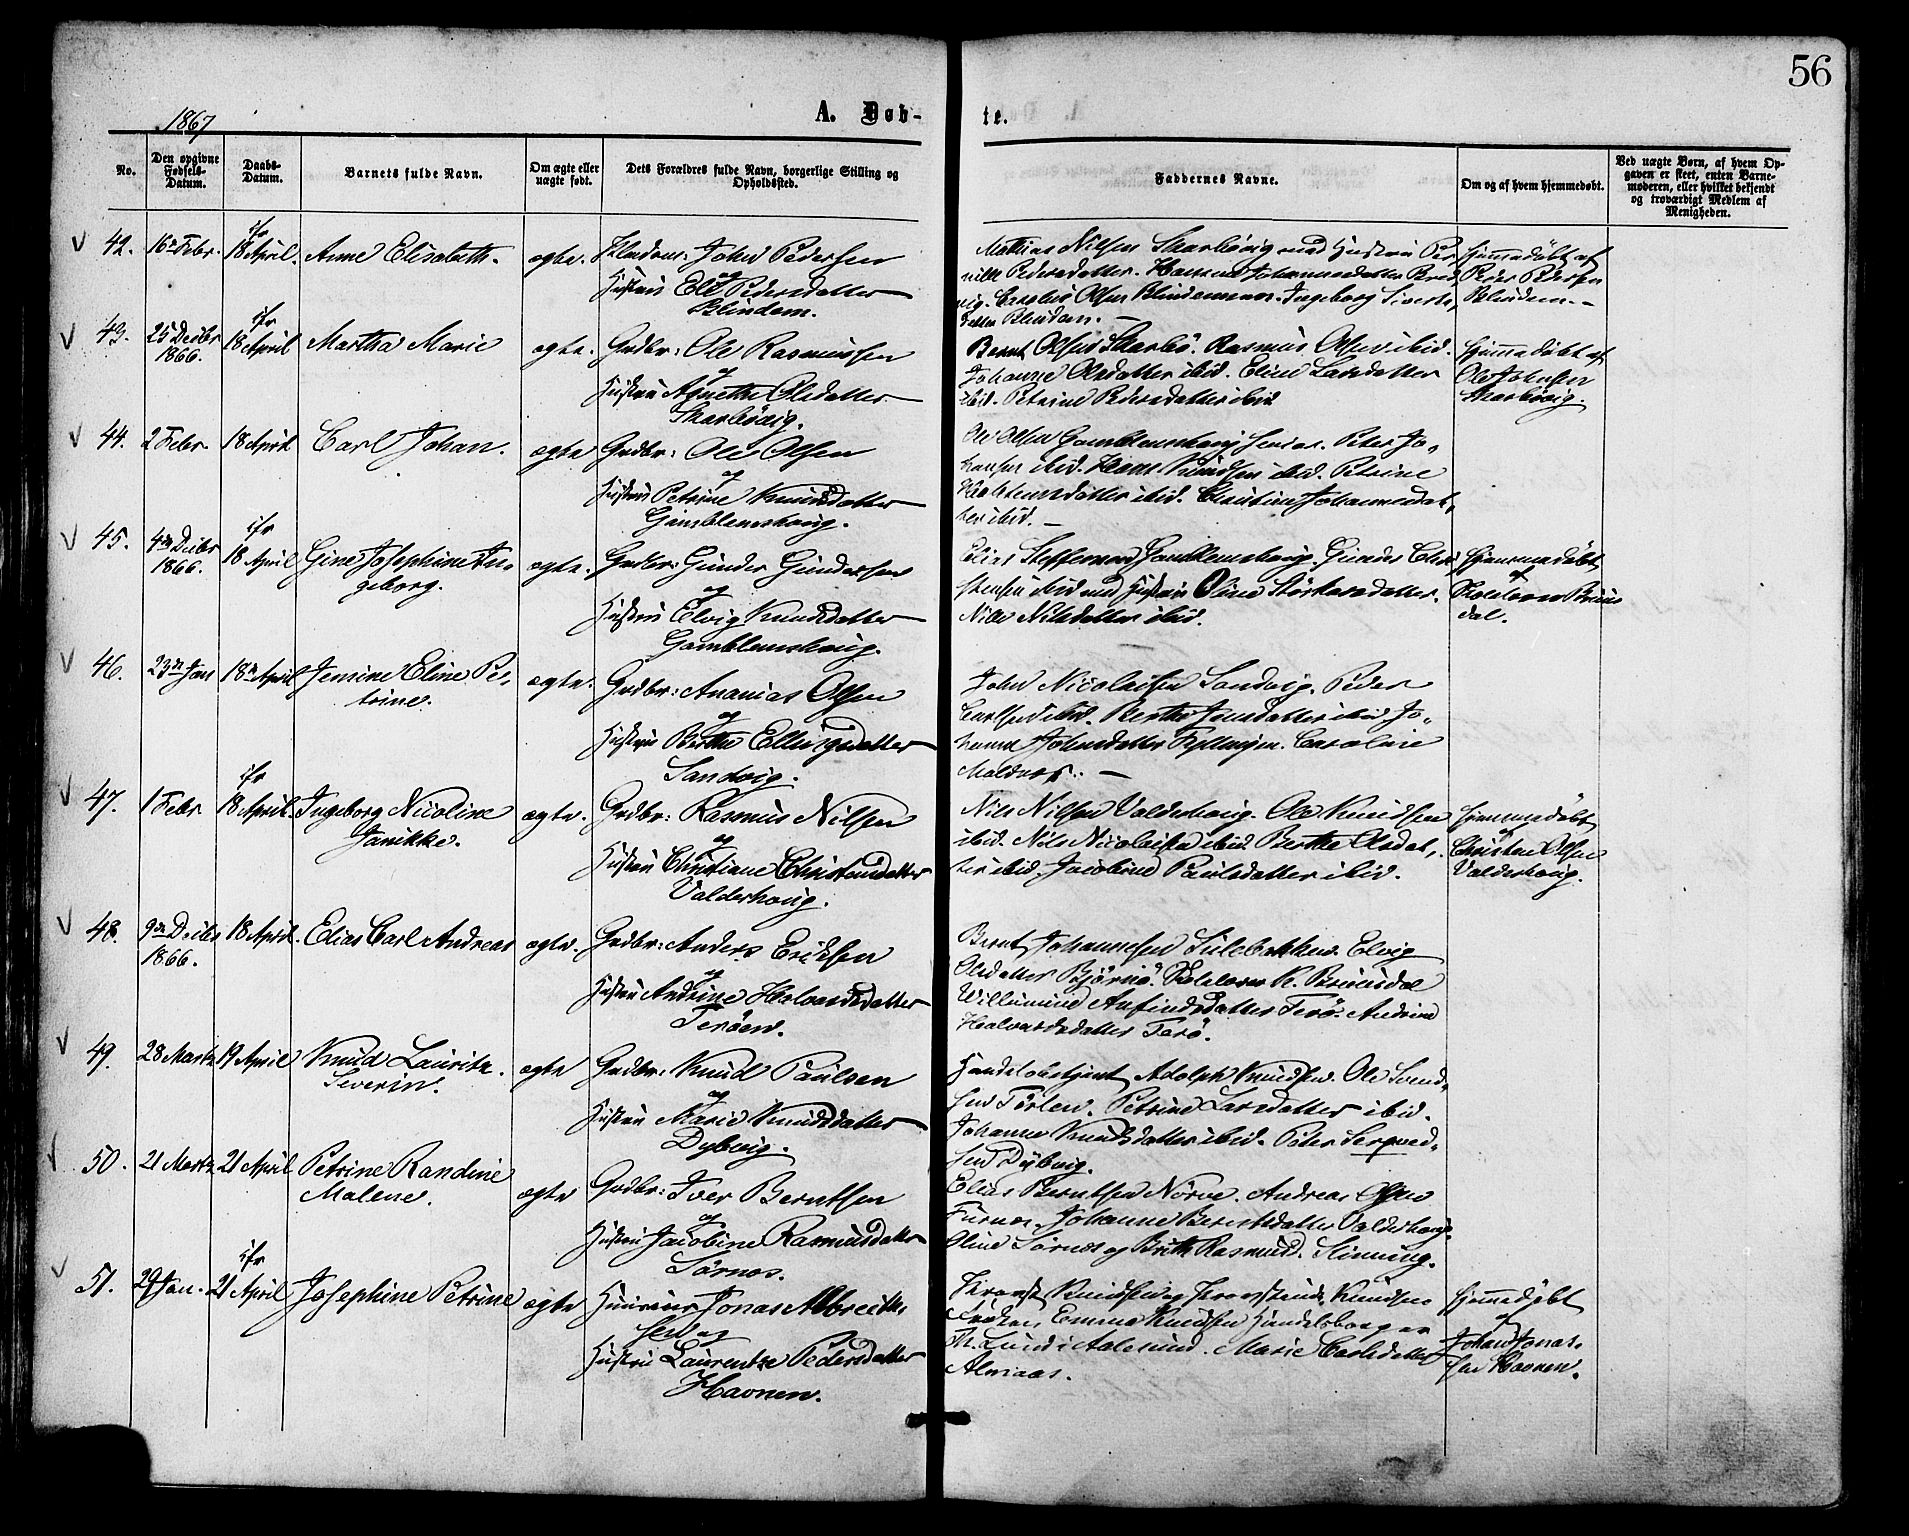 56
1867
A. Døb-
te.
No.
Den opgivne Fødsels-Datum.
Daabs-Datum.
Barnets fulde Navn.
Om ægte eller uægte født.
Dets Forældres fulde Navn, borgerlige Stilling og Opholdssted.
Faddernes Navne.
Om og af hvem hjemmedøbt.
Ved uægte Børn, af hvem Opgaven er skeet, enten Barnemoderen, eller hvilket bekjendt og troværdigt Medlem af Menigheden.
42. 16de Febr. ifr 18 April. Anne Elisabeth. ægte. John Pedersen
og
Hustru Ele Pedersdatter
Blindem.
Mathias Nilsen Skarbövig med Hustru Per
nille Pedersdatter. Johannesdatter
vig. Carolus Olsen Blindemnes. Ingeborg Siverts
datter Blindem.
Hjemmedöbt af
Peder Pedersen
Blindem.
43. 25 Decbr 1866. ifr 18 April Martha Marie ægte. Grdbr: Ole Rasmussen
og
Hustru Agnethe Olsdatter
Skarbövig.
Bernt Olsen Skarbö. Rasmus Olsen ibid.
Johanne Olsdatter ibid. Eline Larsdatter
ibid. Petrine Pedersdatter ibid
Hjemmedöbt af
Ole Johnsen
Skarbövig.
44. 2 Febr. 18 April Carl Johan. ægte Grdbr: Ole Olsen
og
Hustru Petrine Knudsdatter
Gamblemshoug.
Ole Olsen Gamblemshoug Peter Jo-
hansen ibid. Knudsen ibid. Petrine
ibid. Christine Johannesdat-
ter ibid.
45. 4de Decbr 1866. ifr 18 April Gine Josephine In-
geborg.
ægte. Grdbr: Gunder Gundersen
og
Hustru Elvig Knudsdatter
Gamblemshoug.
Elias Steffensen Gamblemshoug. Chri
stensen ibid med Hustru Oline Störkersdatter.
Nille Nilsdatter ibid.
Hjemmedöbt
af
Bruus
dal.
46. 23de Jan 18de April Jensine Eline Pe-
trine.
ægte. Grdbr: Ananias Olsen
og
Hustru Berthe Ellingsdatter
Sandvig.
John Nicolaisen Sandvig. Peder
Carlsen ibid. Berthe Jensdatter ibid Jo-
hanne Johnsdatter Caroline
Maldnæs.
47. 1 Febr ifr 18 April. Ingeborg Nicoline
Janikke.
ægte. Grdbr: Rasmus Nilsen
og
Hustru Christiane Christensdatter
Valderhoug.
Nils Nilsen Valderhoug. Ole Knudsen
ibid. Nils Nicolaisen ibid Berthe Olsdat-
ter ibid. Jacobine Paulsdatter ibid.
Hjemmedöbt
af
Christen Olsen
Valderhoug.
48. 9de Decbr 1866. 18 April. Elias Carl Andreas ægte. Grdbr: Anders Eriksen
og
Hustru Andrine Halvorsdatter
Teröen.
Bernt Johannesen Sulebakken. Elvig
Olsdatter Björnö. K. Bruusdal
Willumine Anfindsdatter Terö. Andrine
Halvorsdatter Terö.
49. 28 Marts 19 April Knud Lauritz
Severin.
ægte Grdbr: Knud Paulsen
og
Hustru Marie Knudsdatter
Dybvig.
Handelsbetjent Adolph Knudsen. Ole Svend-
sen Törlen. Petrine Larsdatter ibid.
Johanne Knudsdatter ibid. Peter
sen Dybvig.
50. 21 Marts 21 April Petrine Randine
Malene.
ægte Grdbr: Iver Berntsen
og
Hustru Jacobine Rasmusdatter
Sörnes.
Elias Berntsen Nörve. Andreas Olsen
Furnes. Johanne Berntsdatter Valderhoug.
Oline Sörnes og Brith Rasmusd. Slinning.
51. 29 Jan. ifr 21 April Josephine Petrine ægte Jonas Albreth-
sen og
Hustru Laurentze Pedersdatter
Havnen.
Knudsen og Knudsen
Emma Knudsen Handelsborger
Th. Lund i Aalesund. Marie Carlsdatter
Almaas.
Hjemmedöbt
af
Johan Jonas-
sen Havnen.